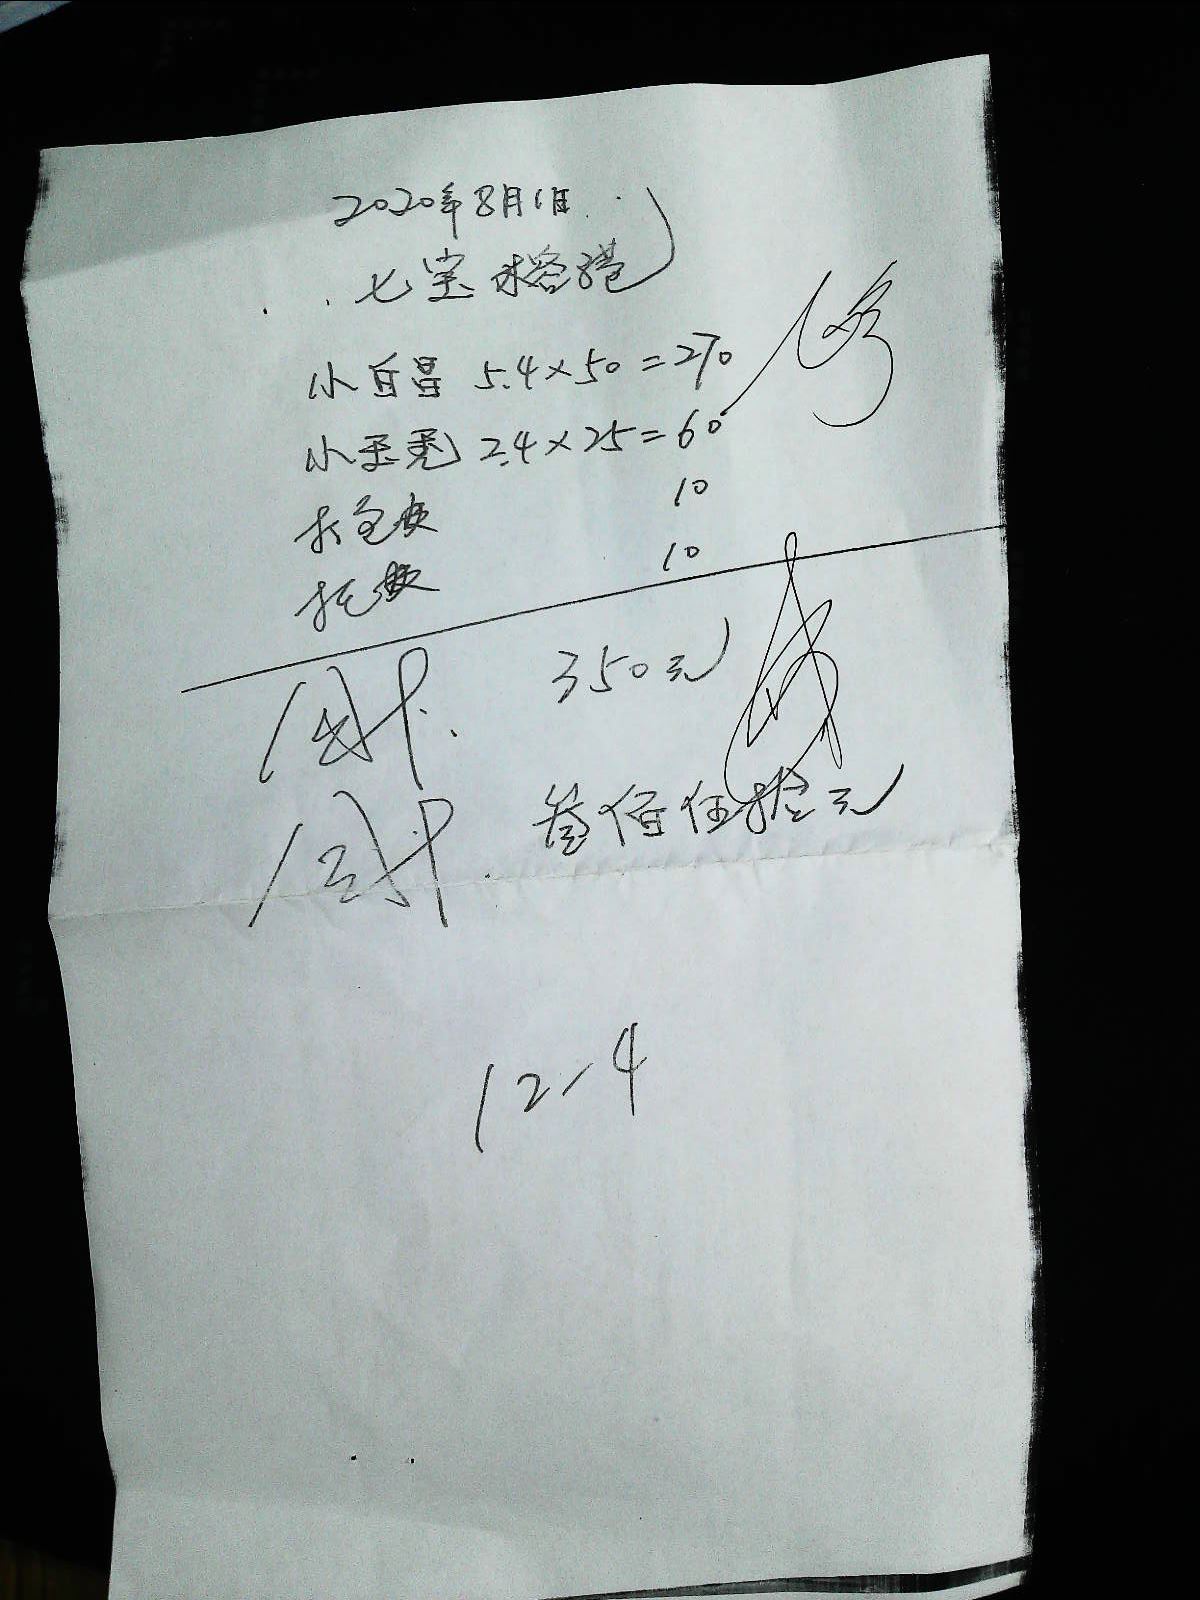 2020年8月1日
七宝
小白昌 5.4×50=270
小 2.4×25=60
打包费 10
托费 10
合计. 350元
合计. 叁佰伍拾元
12-4